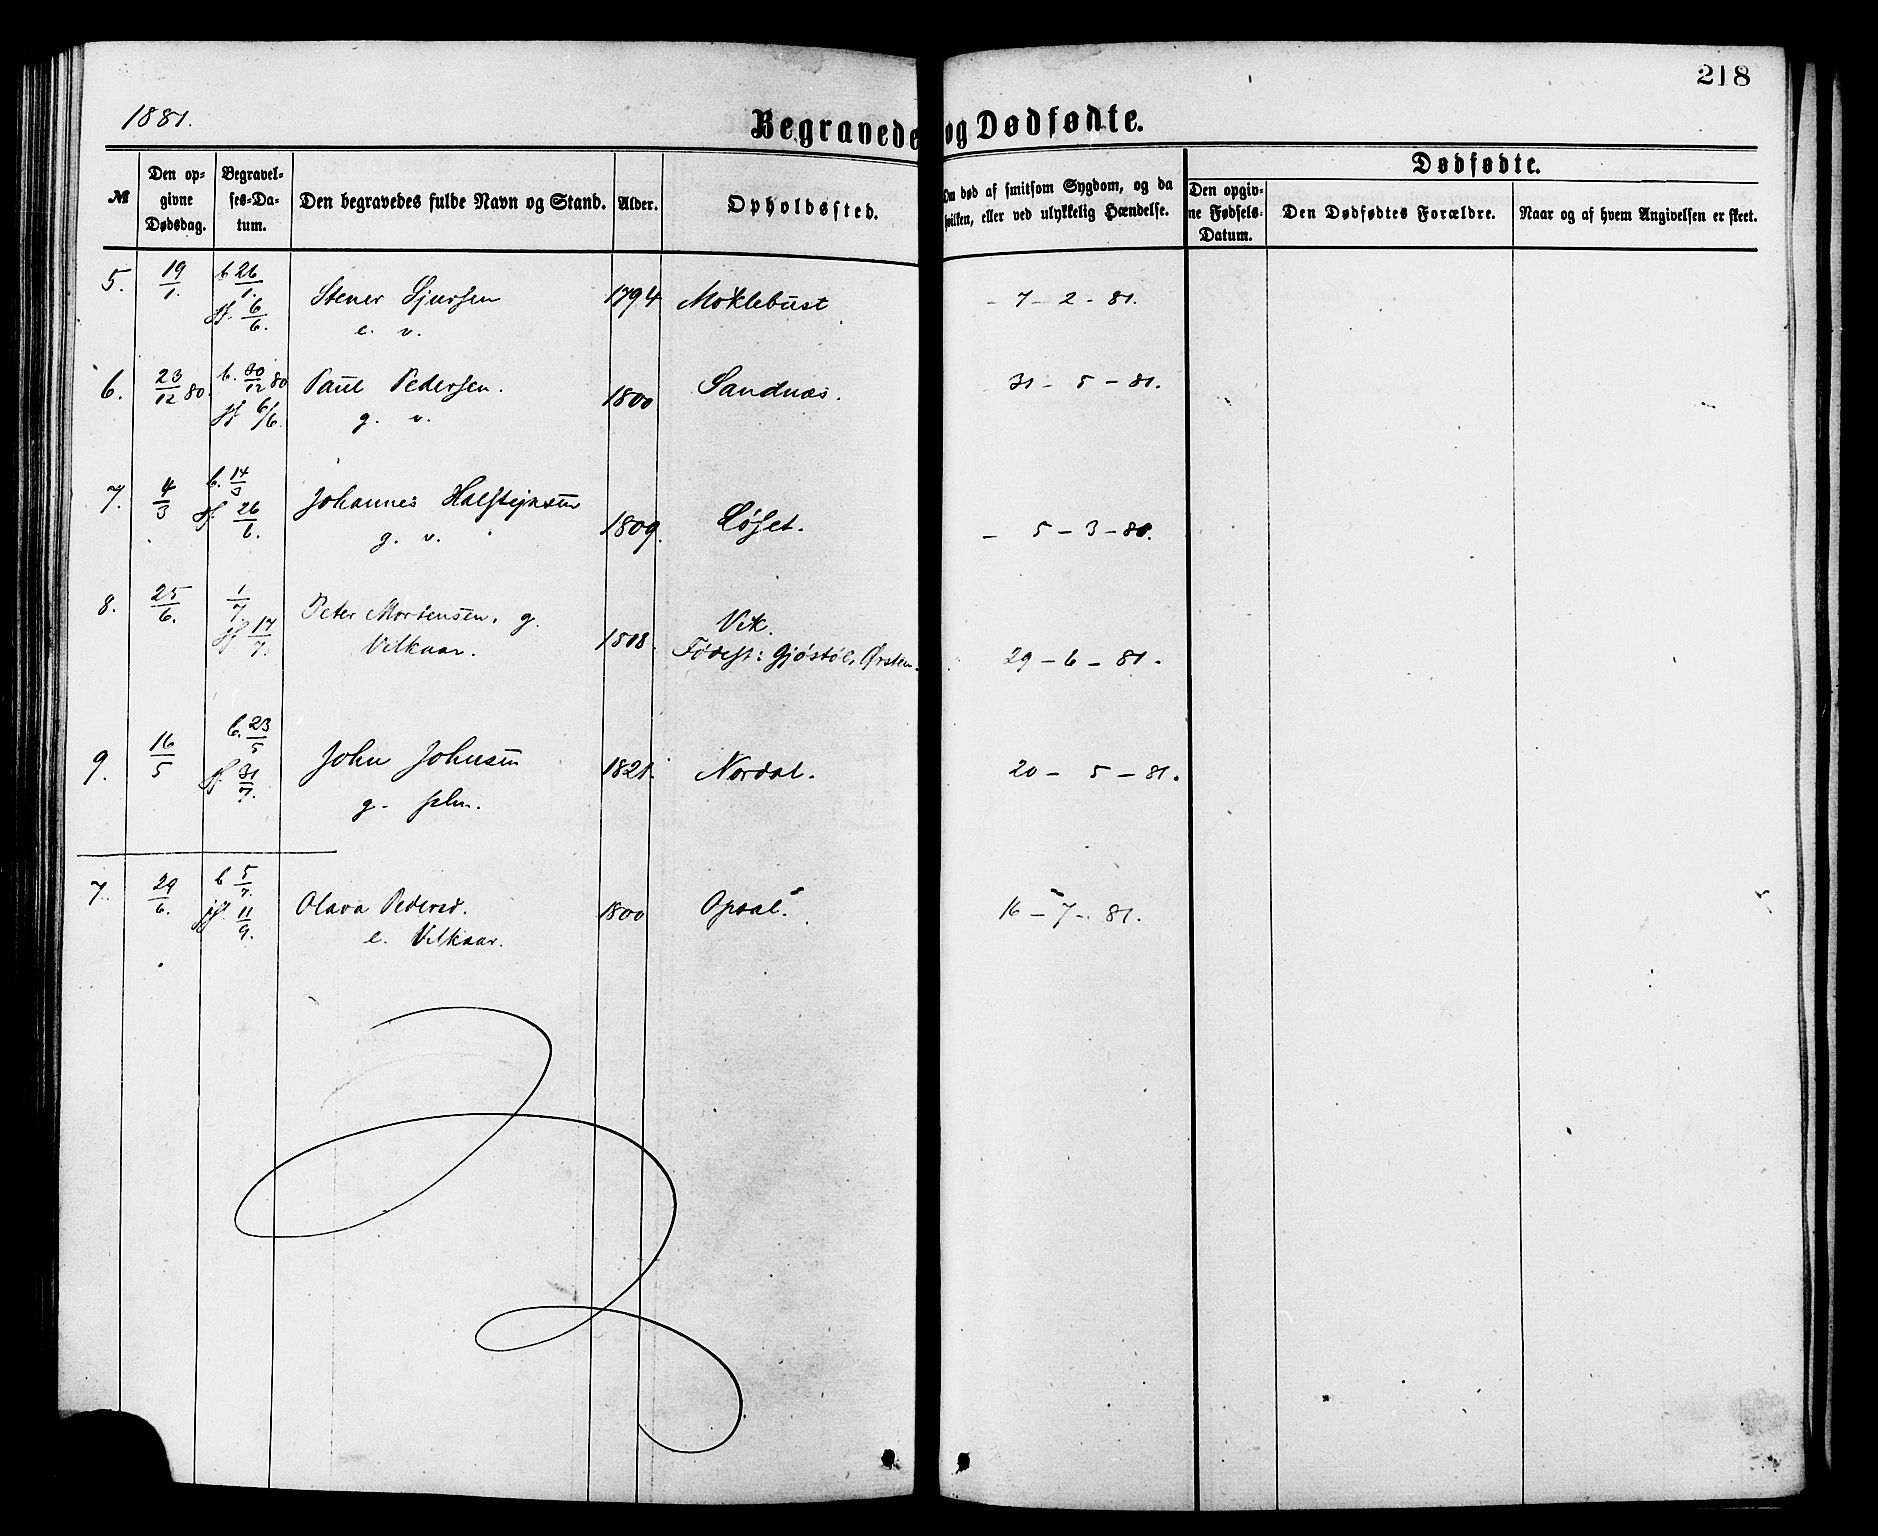 218
1881.
Begravede og Dødfødte.
Dødfødte.
№
Den op-
givne
Dødsdag.
Begravel-
ses-Da-
tum.
Den begravedes fulde Navn og Stand.
Alder.
Opholdssted.
Om død af smitsom Sygdom, og da
hvilken, eller ved ulykkelig Hændelse.
Den opgiv-
ne Fødsels-
Datum.
Den Dødfødtes Forældre.
Naar og af hvem Angivelsen er skeet.
5. 19/1. b 26/1. jf. 6/6. Stener Sjursen 1794 Moklebust - 7 - 2 - 81.
e. v.
6. 23/12 80. b. 30/12 80 jf 6/6. Paul Pedersen. 1800 Sandnæs. 31 - 5 - 81.
g. v.
7. 4/3 b. 14/3 jf. 26/6. Johannes 1809. Løset. - 5 - 3 - 81.
g. v.
8. 25/6. 1/7. jf 17/7. Peter Mortensen. g. 1808. Vik. 29 - 6 - 81.
Vilkaar. Fødest: Gjøstøl, Ørsten.
9. 16/5 b. 23/5 jf. 31/7. John Johnsen 1821. Nordal. 20 - 5 - 81.
g.
7. 29/6. b 5/7. jf. 11/9. Olava Pedersd. 1800 Opsal. 16 - 7 - 81.
e. Vilkaar.